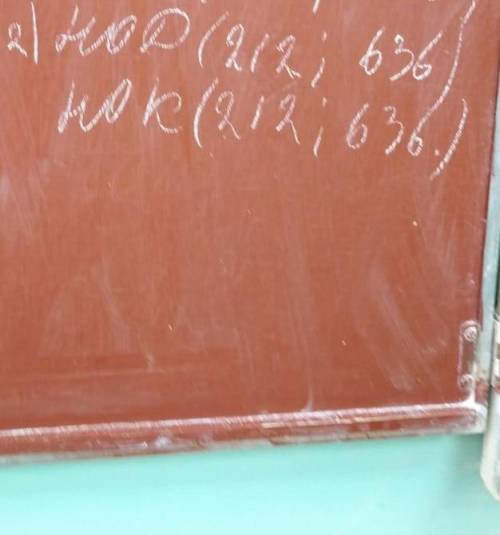 2) НОД (212; 636)
НОК (212; 636.)